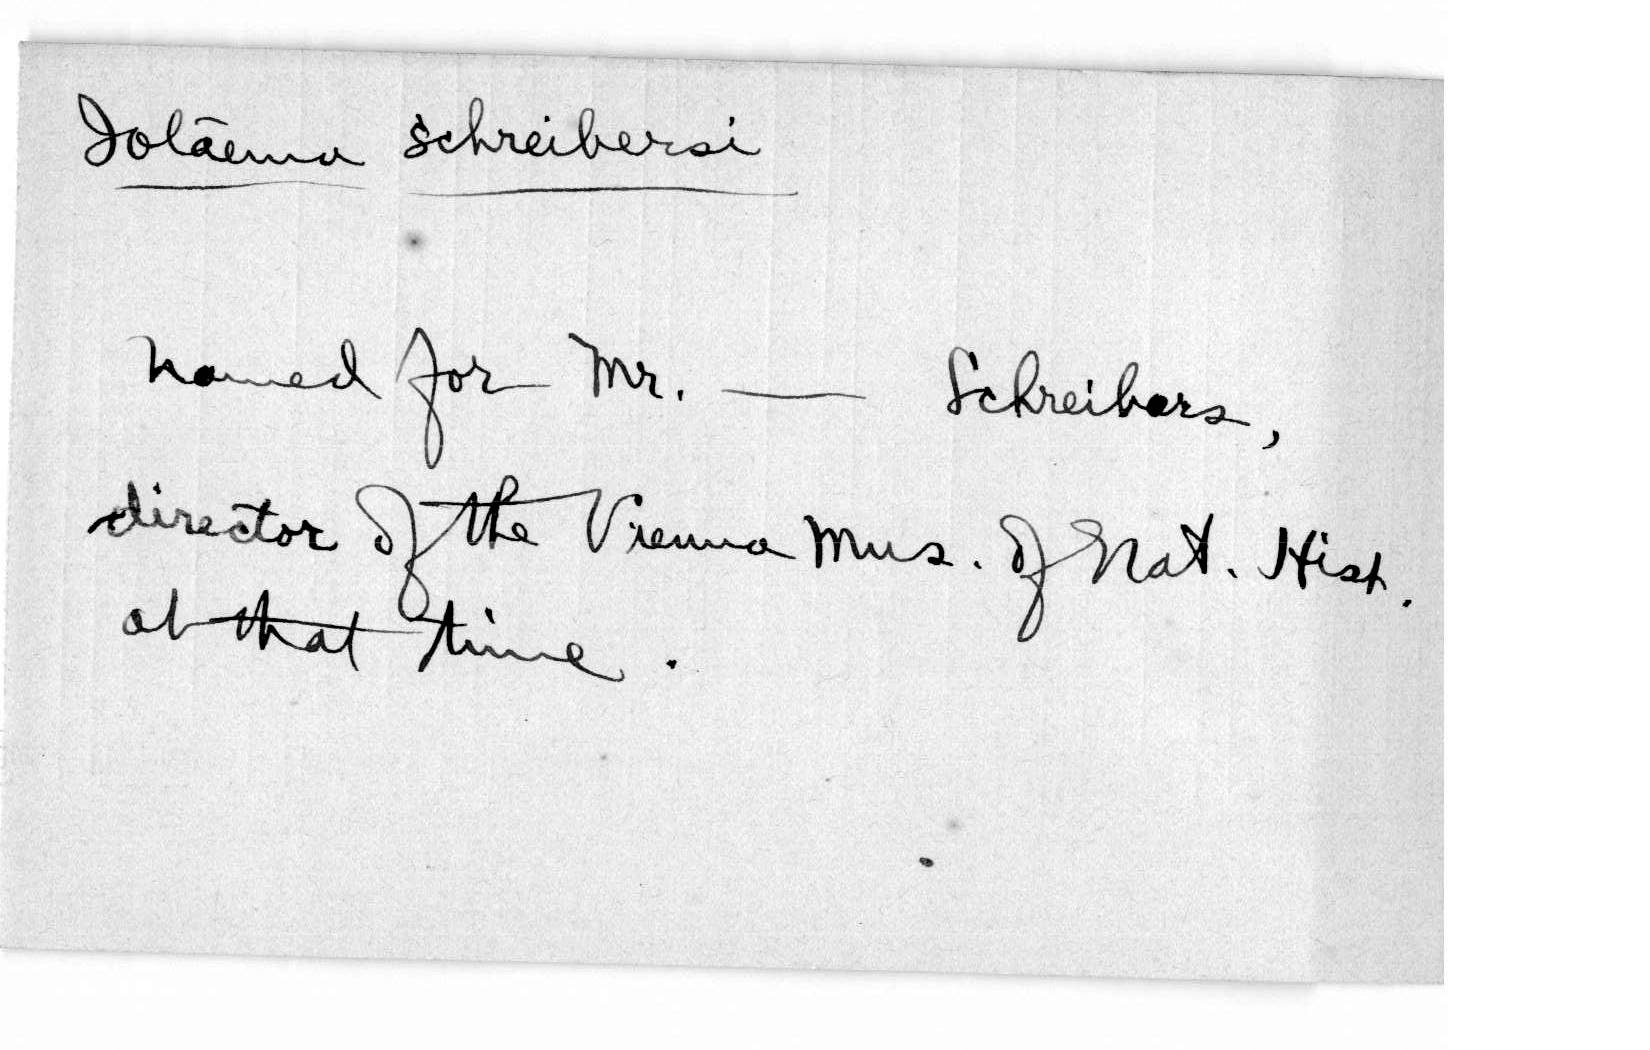 Iolāema schreibersi
named for Mr. — Schreibers,
director of the Vienna Mus. of Nat. Hist.
at that time.